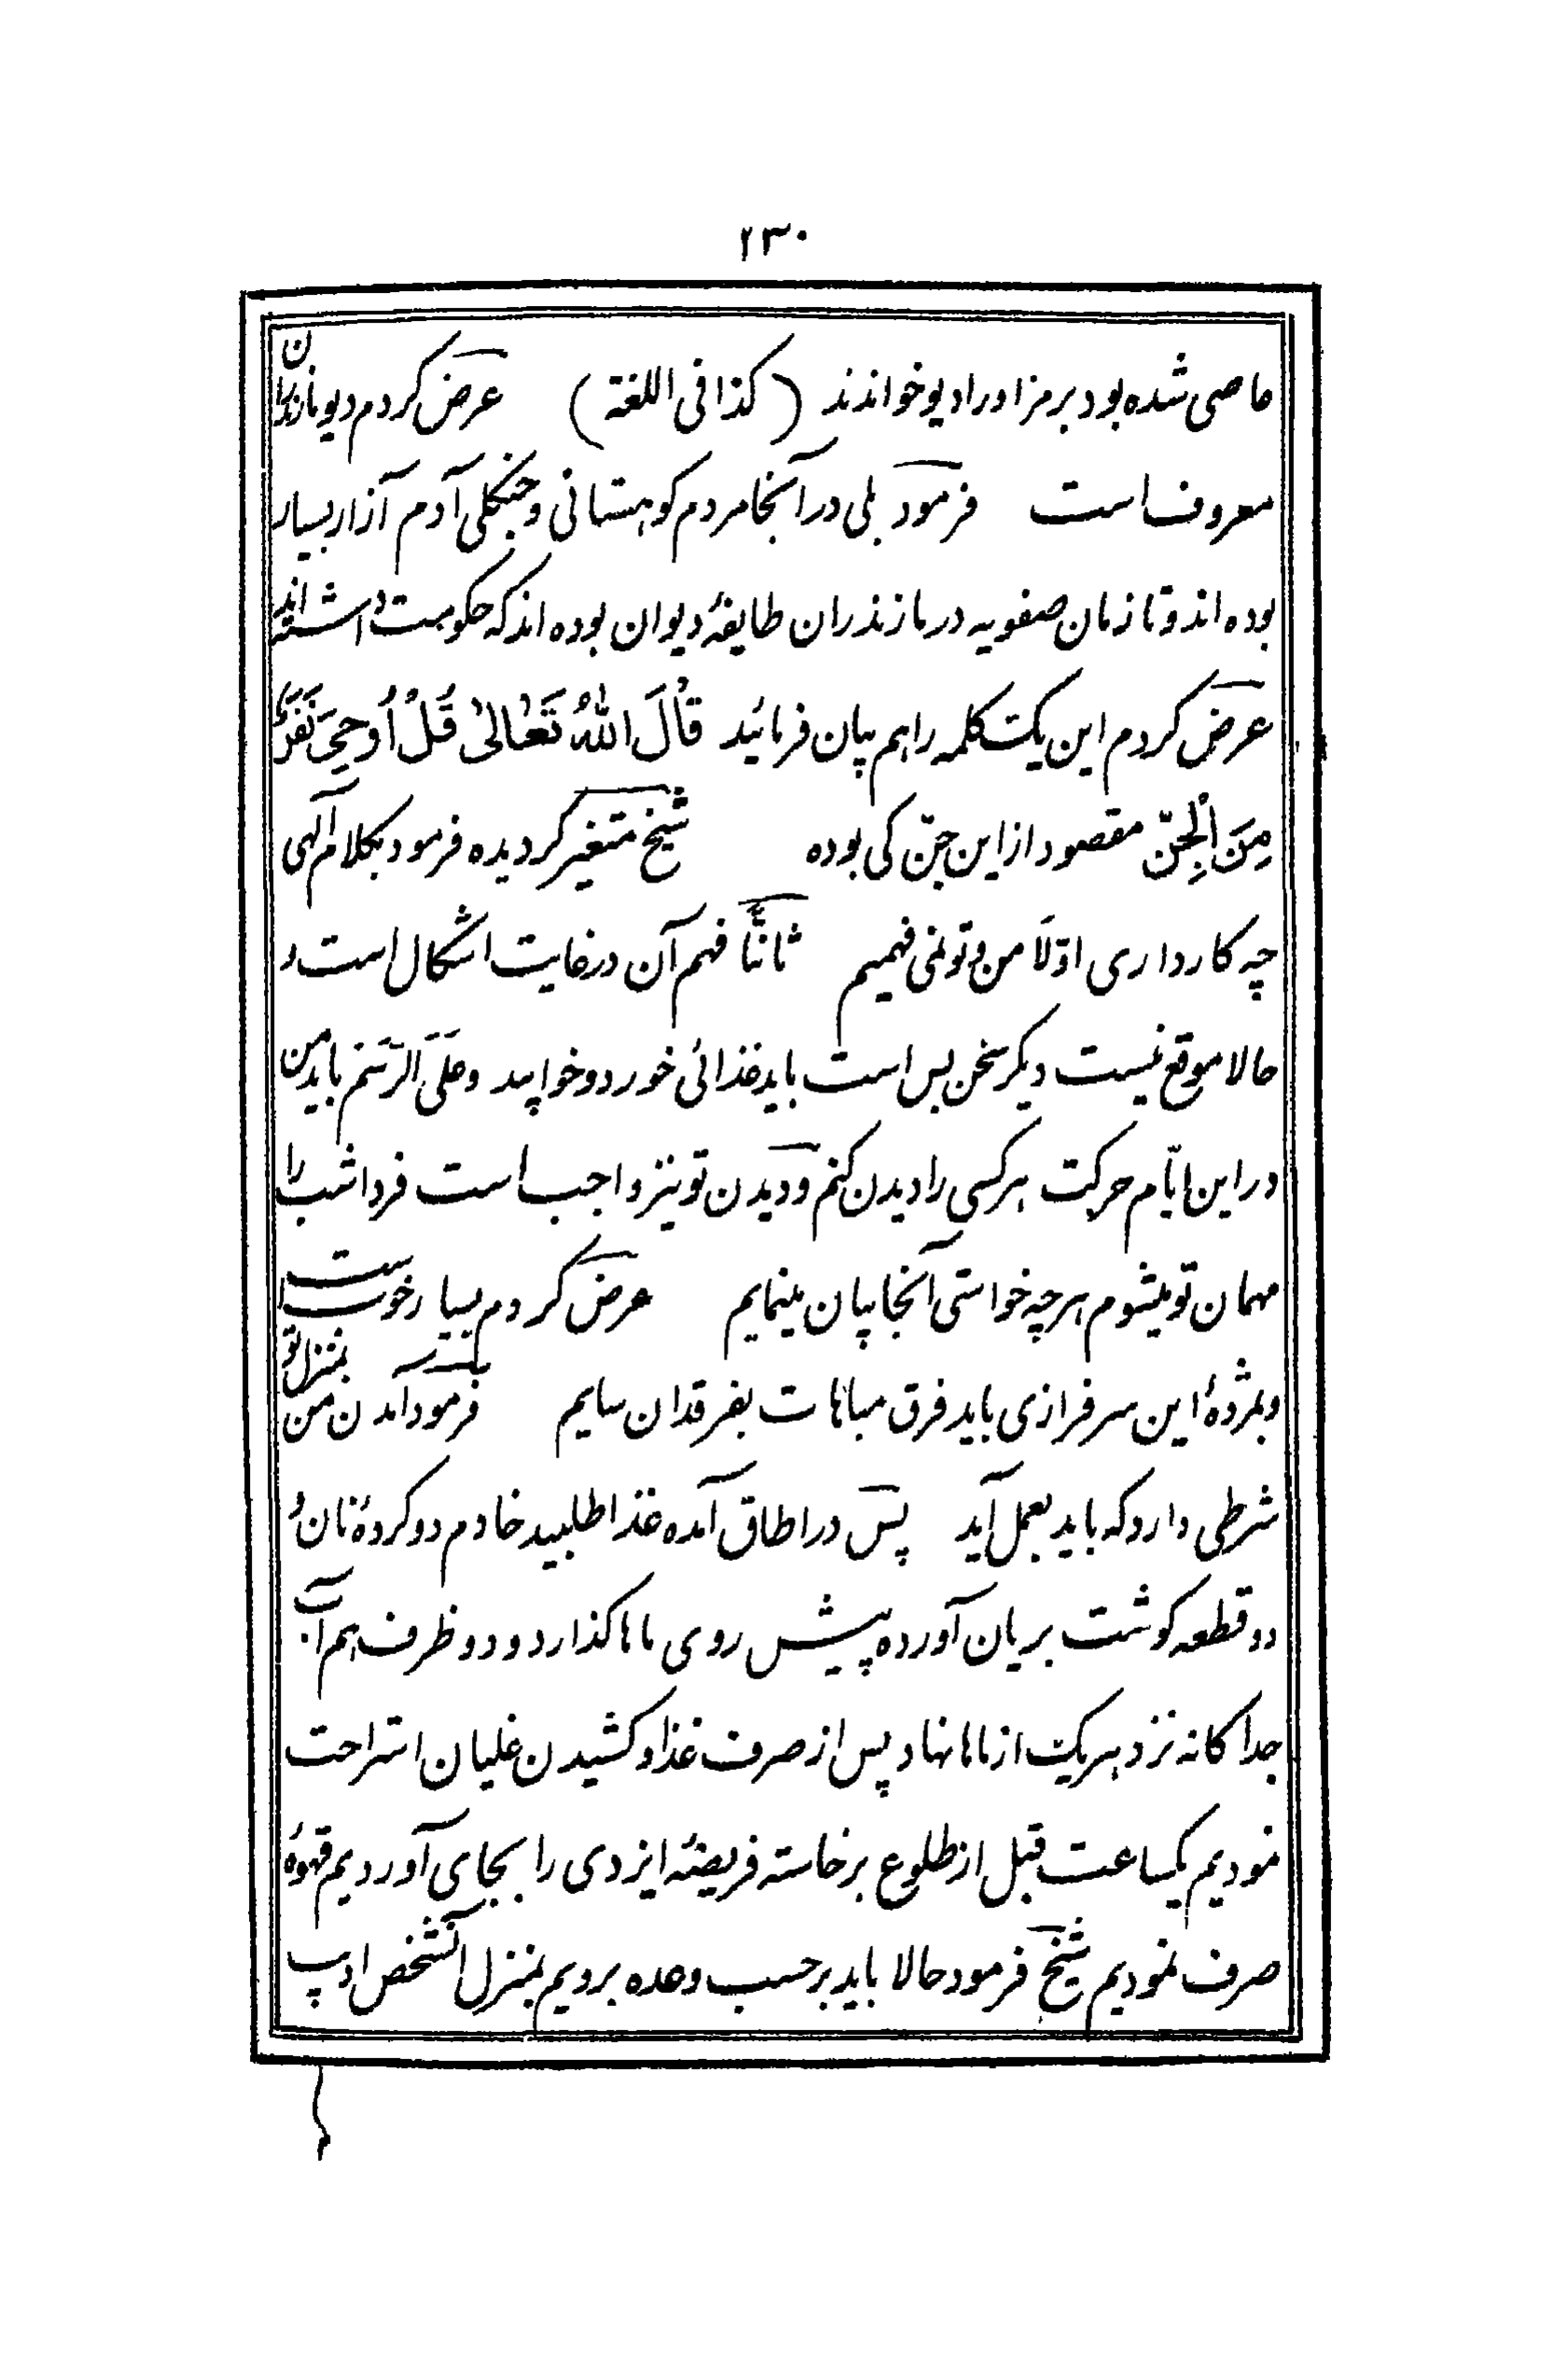 ۲۳۰
عاصی شده بود برمز او را دیو خواندند (کذا فی اللغة) عرض کردم دیو مازندران
معروف است فرمود بلی در آنجا مردم کوهستانی و جنگلی آدم آزار بسیار
بوده اند و تا زمان صفویه در مازندران طایفهٔ دیوان بوده اند که حکومت داشته اند
عرض کردم این یک کلمه را هم بیان فرمائید قالَ اللهُ تَعٰالیٰ قُلْ اُوحِیَ نَفَرٌ
مِنَ الْجِنّ مقصود از این جنّ کی بوده شیخ متغیر کردیده فرمود بکلام آلهی
چه کار داری اوّلاً من و تو نمی فهمیم ثانیاً فهم آن در غایت اشکال است و
حالا موقع نیست دیکر سخن بس است باید غذائی خورد و خوابید وعَلَی الرّسم باید من
در این ایّام حرکت هر کسی را دیدن کنم و دیدن تو نیز واجب است فردا شب را
مهمان تو میشوم هر چه خواستی آنجا بیان مینمایم عرض کردم بسیار خوب است
و بمژدهٔ این سرفرازی باید فرق مباهات بفرقدان سایم فرمود آمدن من بمنزل تو
شرطی دارد که باید بعمل آید پس در اطاق آمده غذا طلبید خادم دو کردهٔ نان و
دو قطعه کوشت بریان آورده پیش روی ماها کذارد و دو ظرف هم آب
جدا کانه نزد هر یک از ماها نهاد پس از صرف غذا و کشیدن غلیان استراحت
نمودیم یکساعت قبل از طلوع برخاسته فریضهٔ ایزدی را بجای آوردیم قهوهٔ
صرف نمودیم شیخ فرمود حالا باید بر حسب وعده برویم بمنزل آنشخص ادیب